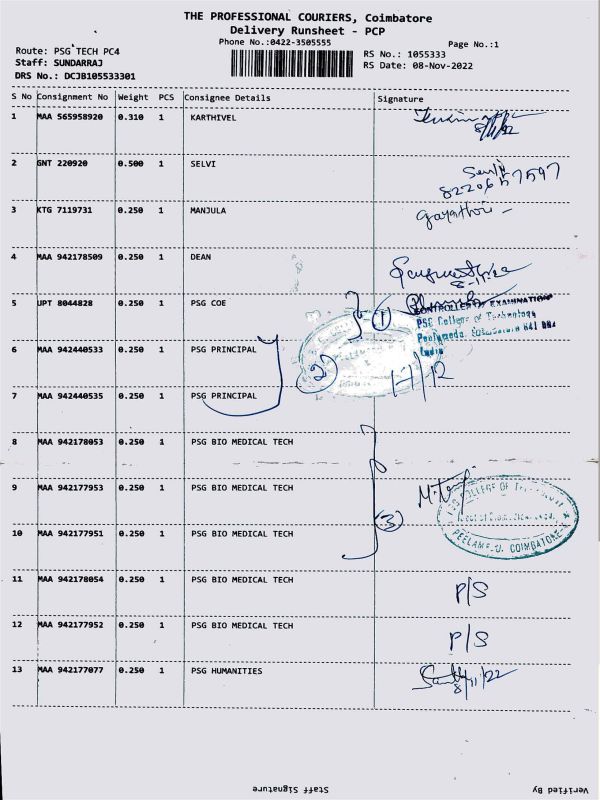 THE PROFESSIONAL COURIERS, Coimbatore
Delivery Runsheet - PCP
Phone No.:0422-3505555
Page No.:1
Route: PSG TECH PC4
Staff: SUNDARRAJ
DRS No.: DCJB105533301
RS No.: 1055333
RS Date: 08-Nov-2022
S No Consignment No Weight PCS Consignee Details Signature
1 MAA 565958920 0.310 1 KARTHIVEL
2 GNT 220920 0.500 1 SELVI
3 KTG 7119731 0.250 1 MANJULA
4 MAA 942178509 0.250 1 DEAN
8-11-22
5 UPT 8044828 0.250 1 PSG COE
1
CONTROLLER OF EXAMINATION
PSG College of Technology
Peelamedu, Coimbatore 641 004
India
6 MAA 942440533 0.250 1 PSG PRINCIPAL
2
7 MAA 942440535 0.250 1 PSG PRINCIPAL
8 MAA 942178053 0.250 1 PSG BIO MEDICAL TECH
9 MAA 942177953 0.250 1 PSG BIO MEDICAL TECH
PSG COLLEGE OF TECHNOLOGY
PEELAMEDU, COIMBATORE-4
10 MAA 942177951 0.250 1 PSG BIO MEDICAL TECH
3
11 MAA 942178054 0.250 1 PSG BIO MEDICAL TECH P/S
12 MAA 942177952 0.250 1 PSG BIO MEDICAL TECH P/S
13 MAA 942177077 0.250 1 PSG HUMANITIES
8/11/22
Staff Signature
Verified By